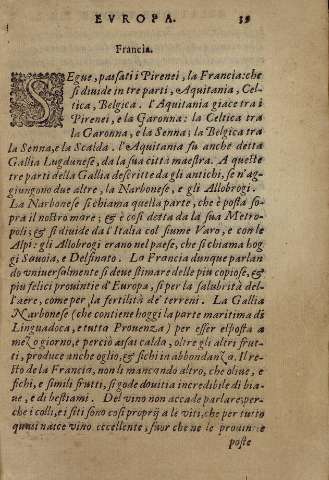 EVROPA. 39
Francia.
SEgue, passati i Pirenei, la Francia: che
si diuide in tre parti, Aquitania, Cel-
tica, Belgica. l'Aquitania giace tra i
Pirenei, e la Garonna: la Celtica tra
la Garonna, e la Senna; la Belgica tra
la Senna, e la Scalda. l'Aquitania fu anche detta
Gallia Lugdunese, da la sua città maestra. A queste
tre parti della Gallia descritte da gli antichi, se n'ag-
giungono due altre, la Narbonese, e gli Allobrogi.
La Narbonese si chiama quella parte, che è posta so-
pra il nostro mare; & è cosi detta da la sua Metro-
poli; & si diuide da l'Italia col fiume Varo, e con le
Alpi: gli Allobrogi erano nel paese, che si chiama hog
gi Sauoia, e Delfinato. La Francia dunque parlan
do vniuersalmente si deue stimare delle piu copiose, &
piu felici prouintie d'Europa, si per la salubrità del-
l'aere, come per la fertilità de' terreni. La Gallia
Narbonese (che contiene hoggi la parte maritima di
Linguadoca, e tutta Prouenza) per esser esposta a
mezo giorno, e perciò assai calda, oltre gli altri frut-
ti, produce anche oglio, & fichi in abbondanza. Il re-
sto de la Francia, non li mancando altro, che oliue, e
fichi, e simili frutti, si gode douitia incredibile di bia-
ue, e di bestiami. Del vino non accade parlare, per-
che i colli, e i siti sono cosi proprij a le viti, che per tutto
quasi nasce vino eccellente, fuor che ne le prouin e
poste